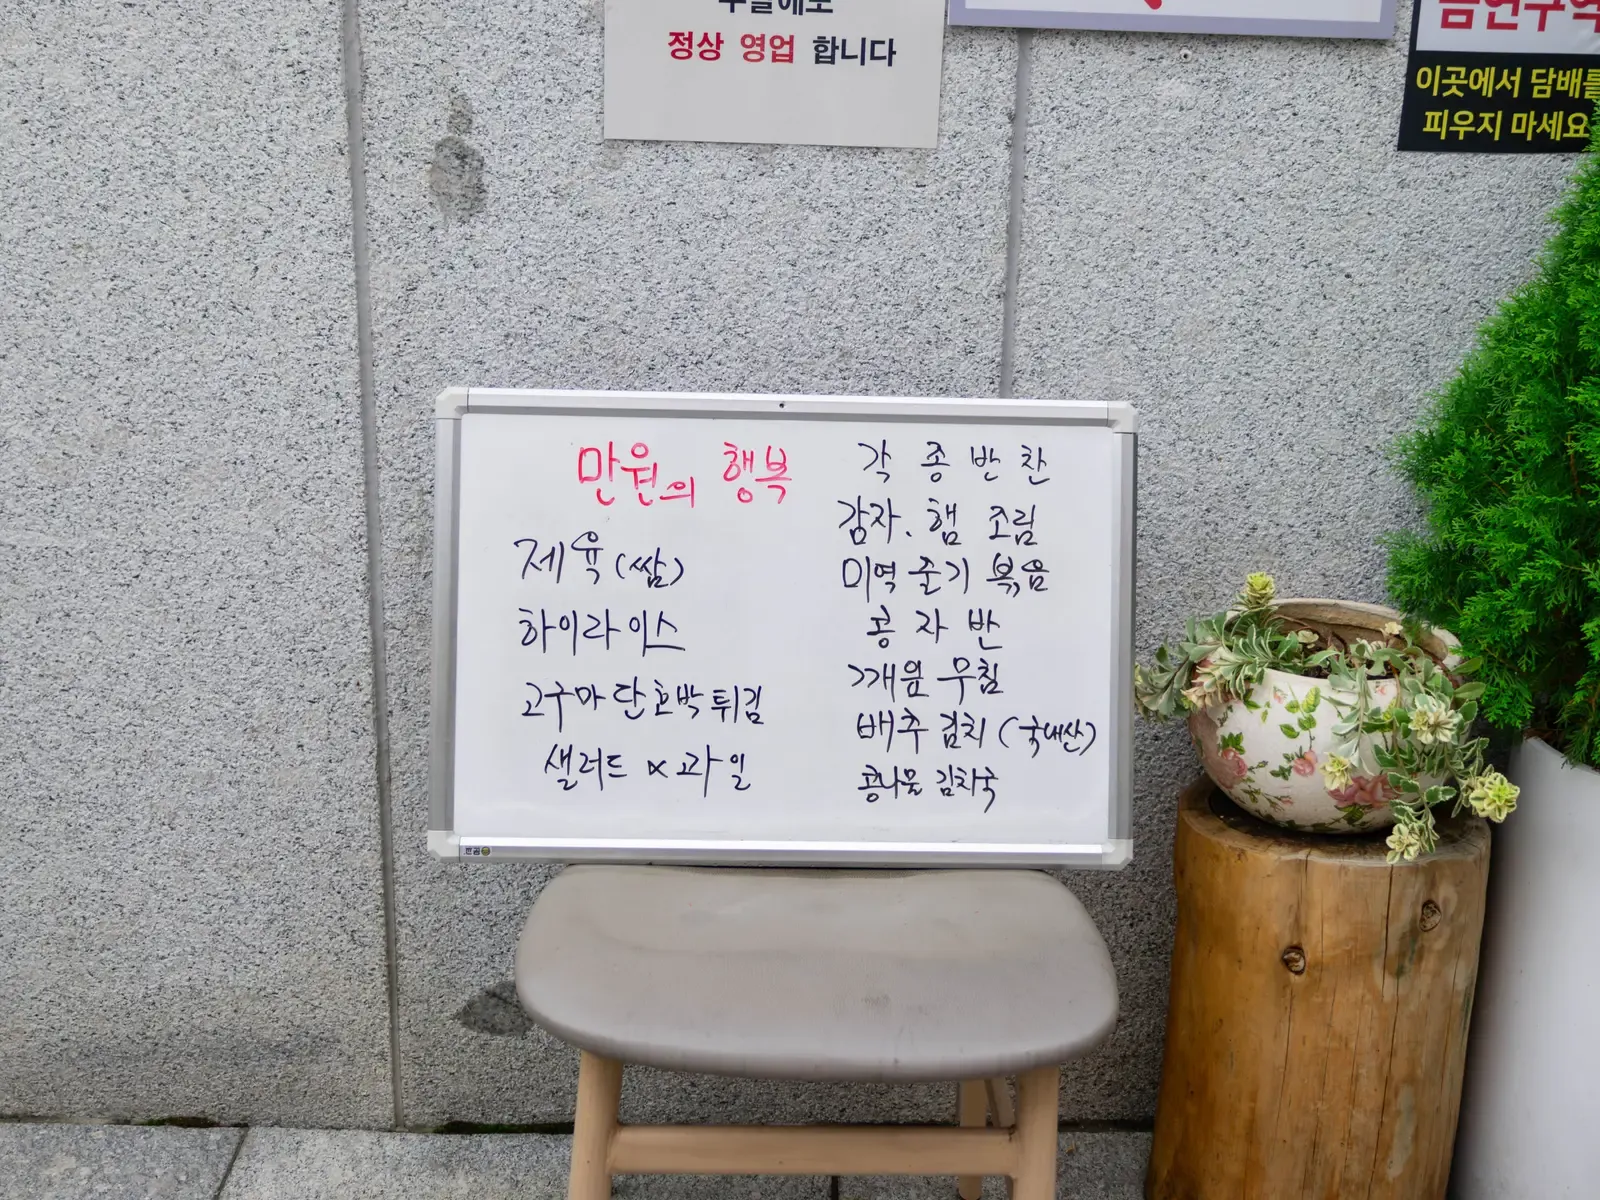 정상 영업 합니다
금연구역
이곳에서 담배를
피우지 마세요
만원의 행복
제육(쌈)
하이라이스
고구마 단호박 튀김
샐러드 & 과일
각종반찬
감자.햄 조림
미역줄기 볶음
콩자반
깨잎 무침
배추김치 (국내산)
콩나물 김치국